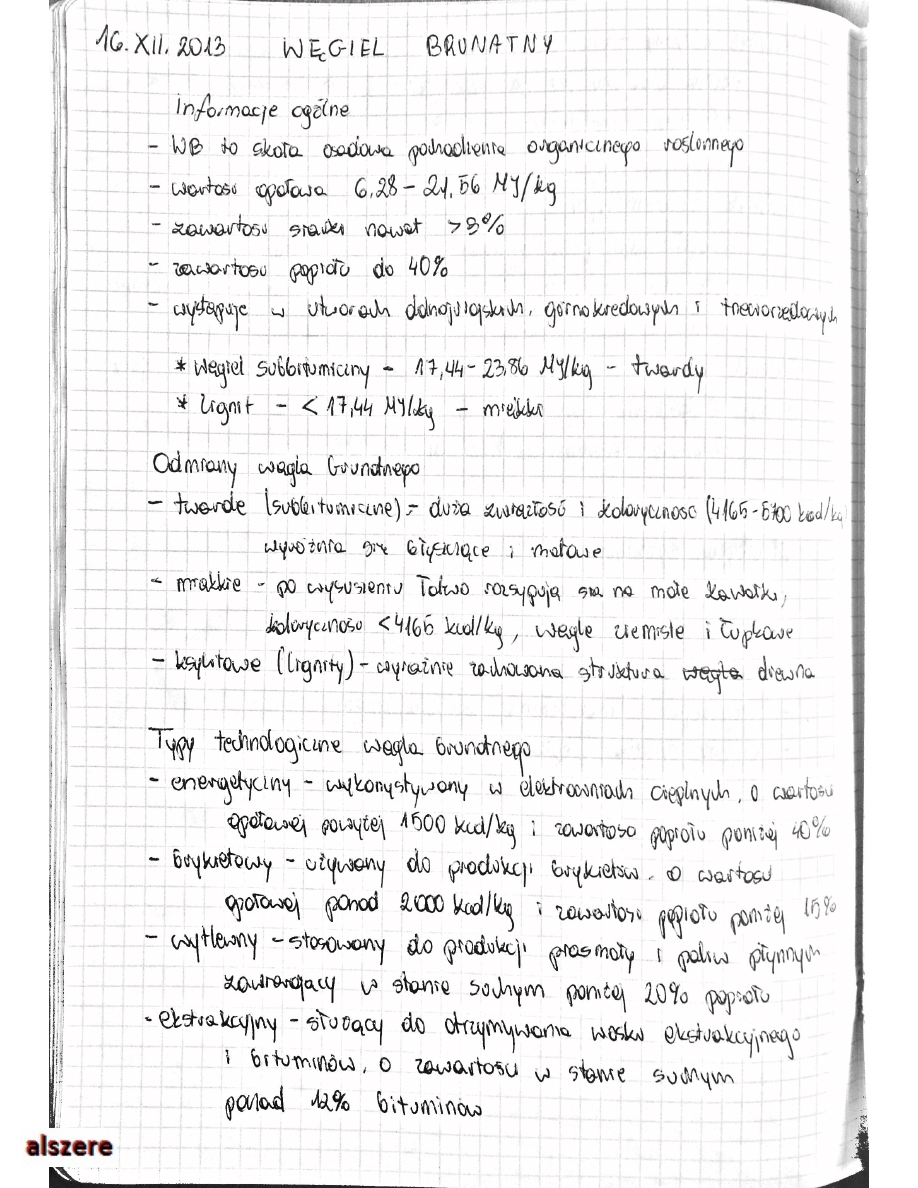 16. XII. 2013 WĘGIEL BRUNATNY
Informacje ogólne
- WB to skała osadowa pochodzenia organicznego roślinnego
- wartość opałowa 6,28 - 21,56 MJ/kg
- zawartość siarki nawet >3%
- zawartość popiołu do 40%
- występuje w utworach dolnojurajskich, górnokredowych i trzeciorzędowych
* Węgiel subbitumiczny - 17,44 - 23,86 MJ/kg - twardy
* Lignit - < 17,44 MJ/kg - miękki
Odmiany węgla brunatnego
- twarde (subbitumiczne) - duża zwięzłość i kaloryczność (4165 - 5700 kcal/kg
wyróżnia się błyszczące i matowe
- miękkie - po wysuszeniu łatwo rozsypują się na małe kawałki,
kaloryczność < 4165 kcal/kg, węgle ziemiste i łupkowe
- ksylitowe (lignity) - wyraźnie zachowana struktura węgla drewna
Typy technologiczne węgla brunatnego
- energetyczny - wykorzystywany w elektrowniach cieplnych, o wartości
opałowej powyżej 1500 kcal/kg i zawartości popiołu poniżej 40%
- brykietowy - używany do produkcji brykietów, o wartości
opałowej ponad 2000 kcal/kg i zawartości popiołu poniżej 15%
- wytlewny - stosowany do produkcji prasmoły i paliw płynnych
zawierający w stanie suchym poniżej 20% popiołu
- ekstrakcyjny - służący do otrzymywania wosku ekstrakcyjnego
i bituminów, o zawartości w stanie suchym
ponad 12% bituminów
alszere